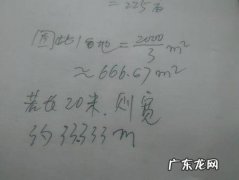 = 225 米
因此1亩地 = 2000/3 m²
≈ 666.67 m²
若长20米，则宽
约33.333 m
广东龙网